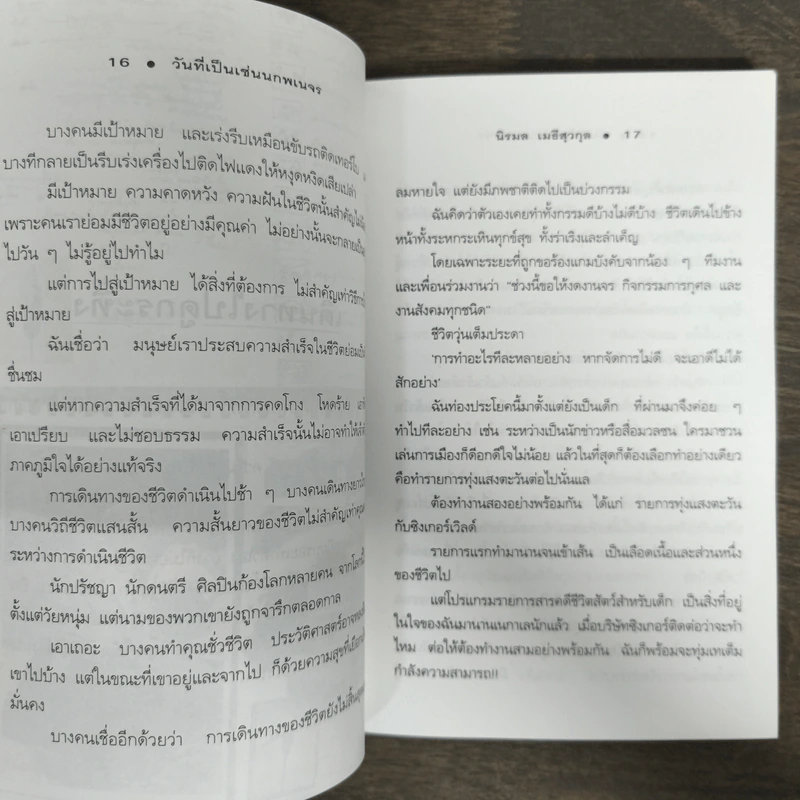 16 ● วันที่เป็นเช่นนกพเนจร
บางคนมีเป้าหมาย และเร่งรีบเหมือนขับรถติดเทอร์โบ
บางทีกลายเป็นรีบเร่งเครื่องไปติดไฟแดงให้หงุดหงิดเสียเปล่า
มีเป้าหมาย ความคาดหวัง ความฝันในชีวิตนั้นสำคัญ
เพราะคนเราย่อมมีชีวิตอยู่อย่างมีคุณค่า ไม่อย่างนั้นจะกลายเป็น
ไปวัน ๆ ไม่รู้อยู่ไปทำไม
แต่การไปสู่เป้าหมาย ได้สิ่งที่ต้องการ ไม่สำคัญเท่าวิธีการ
สู่เป้าหมาย
ฉันเชื่อว่า มนุษย์เราประสบความสำเร็จในชีวิตย่อม
ชื่นชม
แต่หากความสำเร็จที่ได้มาจากการคดโกง โหดร้าย
เอาเปรียบ และไม่ชอบธรรม ความสำเร็จนั้นไม่อาจทำให้
ภาคภูมิใจได้อย่างแท้จริง
การเดินทางของชีวิตดำเนินไปช้า ๆ บางคนเดินทางยาว
บางคนวิถีชีวิตแสนสั้น ความสั้นยาวของชีวิตไม่สำคัญเท่า
ระหว่างการดำเนินชีวิต
นักปรัชญา นักดนตรี ศิลปินก้องโลกหลายคน จากโลก
ตั้งแต่วัยหนุ่ม แต่นามของพวกเขายังถูกจารึกตลอดกาล
เอาเถอะ บางคนทำคุณชั่วชีวิต ประวัติศาสตร์อาจ
เขาไปบ้าง แต่ในขณะที่เขาอยู่และจากไป ก็ด้วยความสุขที่
มั่นคง
บางคนเชื่ออีกด้วยว่า การเดินทางของชีวิตยังไม่สิ้น
นิรมล เมธีสุวกุล ● 17
ลมหายใจ แต่ยังมีภพชาติติดไปเป็นบ่วงกรรม
ฉันคิดว่าตัวเองเคยทำทั้งกรรมดีบ้างไม่ดีบ้าง ชีวิตเดินไปข้าง
หน้าทั้งระหกระเหินทุกข์สุข ทั้งร่าเริงและลำเค็ญ
โดยเฉพาะระยะที่ถูกขอร้องแกมบังคับจากน้อง ๆ ทีมงาน
และเพื่อนร่วมงานว่า "ช่วงนี้ขอให้งดงานจร กิจกรรมการกุศล และ
งานสังคมทุกชนิด"
ชีวิตวุ่นเต็มประดา
'การทำอะไรทีละหลายอย่าง หากจัดการไม่ดี จะเอาดีไม่ได้
สักอย่าง'
ฉันท่องประโยคนี้มาตั้งแต่ยังเป็นเด็ก ที่ผ่านมาจึงค่อย ๆ
ทำไปทีละอย่าง เช่น ระหว่างเป็นนักข่าวหรือสื่อมวลชน ใครมาชวน
เล่นการเมืองก็ดีอกดีใจไม่น้อย แล้วในที่สุดก็ต้องเลือกทำอย่างเดียว
คือทำรายการทุ่งแสงตะวันต่อไปนั่นแล
ต้องทำงานสองอย่างพร้อมกัน ได้แก่ รายการทุ่งแสงตะวัน
กับซิงเกอร์เวิลด์
รายการแรกทำมานานจนเข้าเส้น เป็นเลือดเนื้อและส่วนหนึ่ง
ของชีวิตไป
แต่โปรแกรมรายการสารคดีชีวิตสัตว์สำหรับเด็ก เป็นสิ่งที่อยู่
ในใจของฉันมานานเนกาเลนักแล้ว เมื่อบริษัทซิงเกอร์ติดต่อว่าจะทำ
ไหม ต่อให้ต้องทำงานสามอย่างพร้อมกัน ฉันก็พร้อมจะทุ่มเทเต็ม
กำลังความสามารถ!!